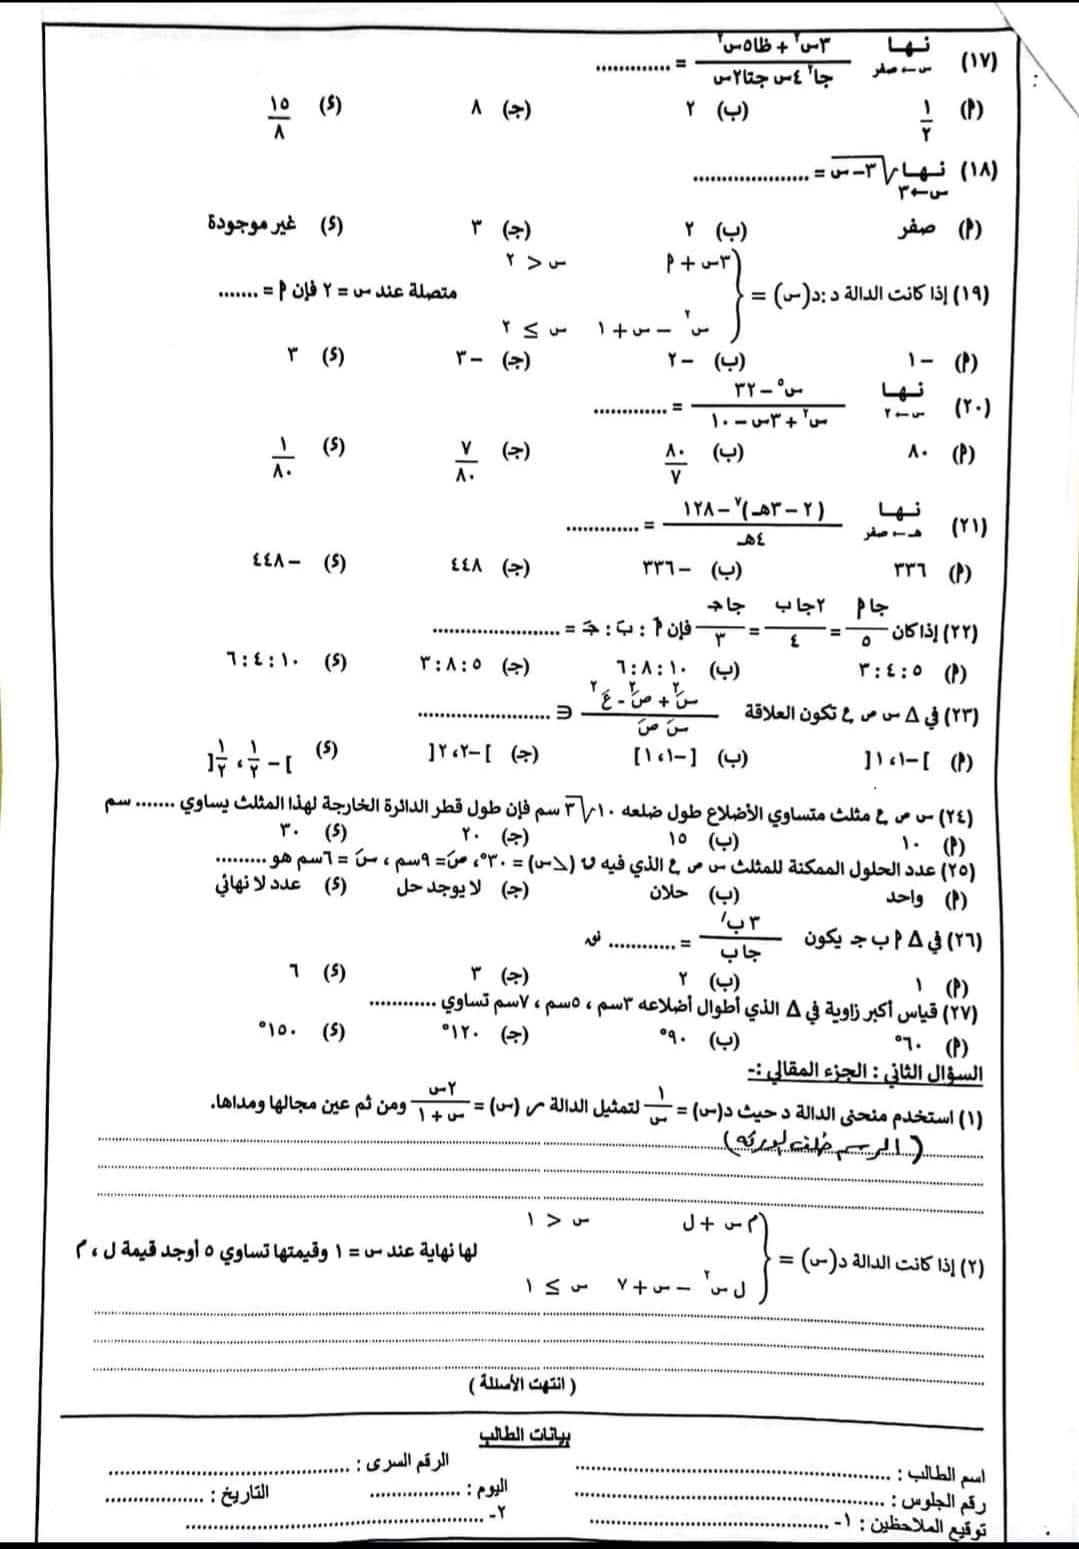 (١٧) نهــا س←صفر (٣س٢ + ظا٥س٢)/(جا٢ ٤س جتا٢س) = .............
(أ) ١/٢ (ب) ٢ (ج) ٨ (د) ١٥/٨
(١٨) نهــا س←٣ √(٣-س) = ....................
(أ) صفر (ب) ٢ (ج) ٣ (د) غير موجودة
٣س + أ س > ٢
(١٩) إذا كانت الدالة د :د(س) = { متصلة عند س = ٢ فإن أ = .......
س٢ - س + ١ س ≤ ٢
(أ) -١ (ب) -٢ (ج) -٣ (د) ٣
(٢٠) نهــا س←٢ (س٥ - ٣٢)/(س٢ + ٣س - ١٠) = .............
(أ) ٨٠ (ب) ٨٠/٧ (ج) ٧/٨٠ (د) ١/٨٠
(٢١) نهــا هـ←صفر ((٢ - ٣هـ)٧ - ١٢٨)/٤هـ = .............
(أ) ٣٣٦ (ب) -٣٣٦ (ج) ٤٤٨ (د) -٤٤٨
(٢٢) إذا كان جا أ/٥ = ٢جا ب/٤ = جا جـ/٣ فإن أَ : بَ : جـَ = ......................
(أ) ٥ : ٤ : ٣ (ب) ١٠ : ٨ : ٦ (ج) ٥ : ٨ : ٣ (د) ١٠ : ٤ : ٦
(٢٣) في Δ س ص ع تكون العلاقة (سَ٢ + صَ٢ - عَ٢)/(سَ صَ) ∈ .......................
(أ) ]-١ ، ١[ (ب) [-١ ، ١] (ج) ]-٢ ، ٢[ (د) ]-١/٢ ، ١/٢[
(٢٤) س ص ع مثلث متساوي الأضلاع طول ضلعه ١٠√٣ سم فإن طول قطر الدائرة الخارجة لهذا المثلث يساوي ....... سم
(أ) ١٠ (ب) ١٥ (ج) ٢٠ (د) ٣٠
(٢٥) عدد الحلول الممكنة للمثلث س ص ع الذي فيه ق (∠س) = ٣٠° ، صَ = ٩سم ، سَ = ٦سم هو .........
(أ) واحد (ب) حلان (ج) لا يوجد حل (د) عدد لا نهائي
(٢٦) في Δ أ ب جـ يكون ٣ بَ/جا ب = ............ نق
(أ) ١ (ب) ٢ (ج) ٣ (د) ٦
(٢٧) قياس أكبر زاوية في Δ الذي أطوال أضلاعه ٣سم ، ٥سم ، ٧سم تساوي ............
(أ) ٦٠° (ب) ٩٠° (ج) ١٢٠° (د) ١٥٠°
السؤال الثاني : الجزء المقالي :-
(١) استخدم منحنى الدالة د حيث د(س) = ١/س لتمثيل الدالة ر (س) = ٢س/(س + ١) ومن ثم عين مجالها ومداها.
(الرسم خلف الورقة)
م س + ل س > ١
(٢) إذا كانت الدالة د(س) = { لها نهاية عند س = ١ وقيمتها تساوي ٥ أوجد قيمة ل ، م
ل س٢ - س + ٧ س ≤ ١
( انتهت الأسئلة )
بيانات الطالب
اسم الطالب : .............................. الرقم السرى : ..............................
رقم الجلوس : .............................. اليوم : ................ التاريخ : ................
توقيع الملاحظين : ١- .............................. ٢- ..............................